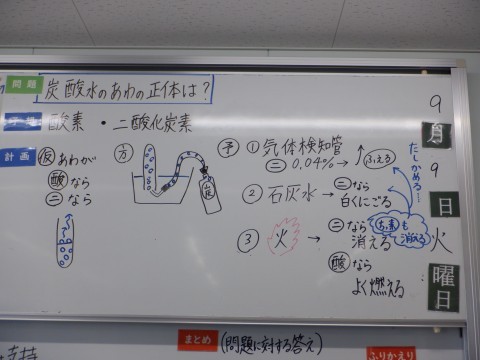 問題 炭酸水のあわの正体は?
予想 酸素・二酸化炭素
計画 仮 あわが
酸なら
二なら
方
炭
予 ① 気体検知管
二 0.04%→ ↑ ふえる
② 石灰水 → 二なら
白くにごる
③ 火 → 二なら
消える
ちっ素も
消える
酸なら
よく燃える
たしかめる…
9
月
9
日
火
曜
日
まとめ (問題に対する答え)
ふりかえり
支持